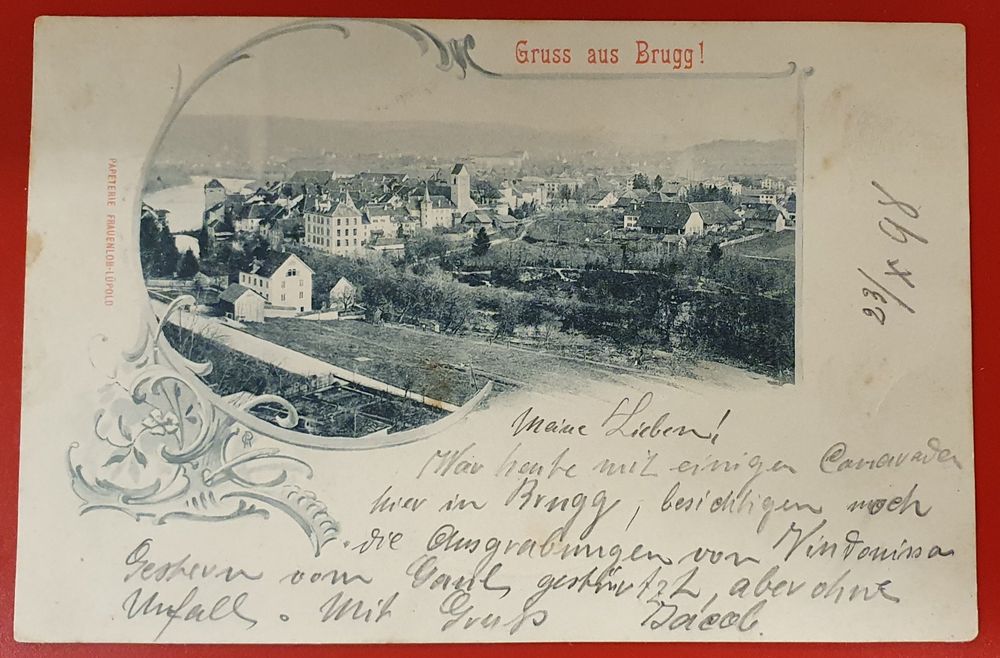 Gruss aus Brugg!
PAPETERIE FRAUENLOB-LÜPOLD
23/X 98
Meine Lieben!
War heute mit einigen Camaraden
hier in Brugg, besichtigen noch
die Ausgrabungen von Vindonissa
Gestern vom Gaul gestürtzt, aber ohne
Unfall. Mit Gruß Jacob.